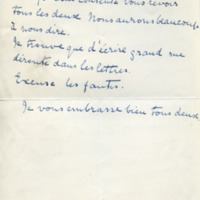 vous revoir
tous les deux. Nous aurons beaucoup
à nous dire.
Je trouve que d'écrire grand me
déroute dans les lettres.
Excuse les fautes.
Je vous embrasse bien tous deux